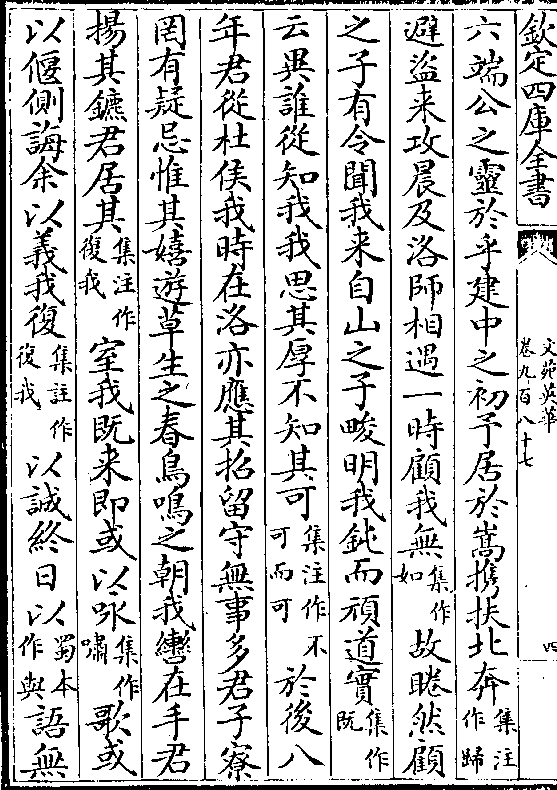 欽定四庫全書
文苑英華
卷九百八十七
四
六端公之靈於乎建中之初予居於嵩携扶北奔集注作歸
避盜来攻晨及洛師相遇一時顧我無集作如故睠然顧
之子有令聞我来自山之子畯明我鈍而頑道實集作既
云異誰從知我我思其厚不知其可集注作不可而可於後八
年君從杜侯我時在洛亦應其招留守無事多君子寮
罔有疑忌惟其嬉遊草生之春鳥鳴之朝我轡在手君
揚其鑣君居其集注作復我室我既来即或以咏集作嘯歌或
以偃側誨余以義我復集註作復我以誠終日以蜀本作與語無